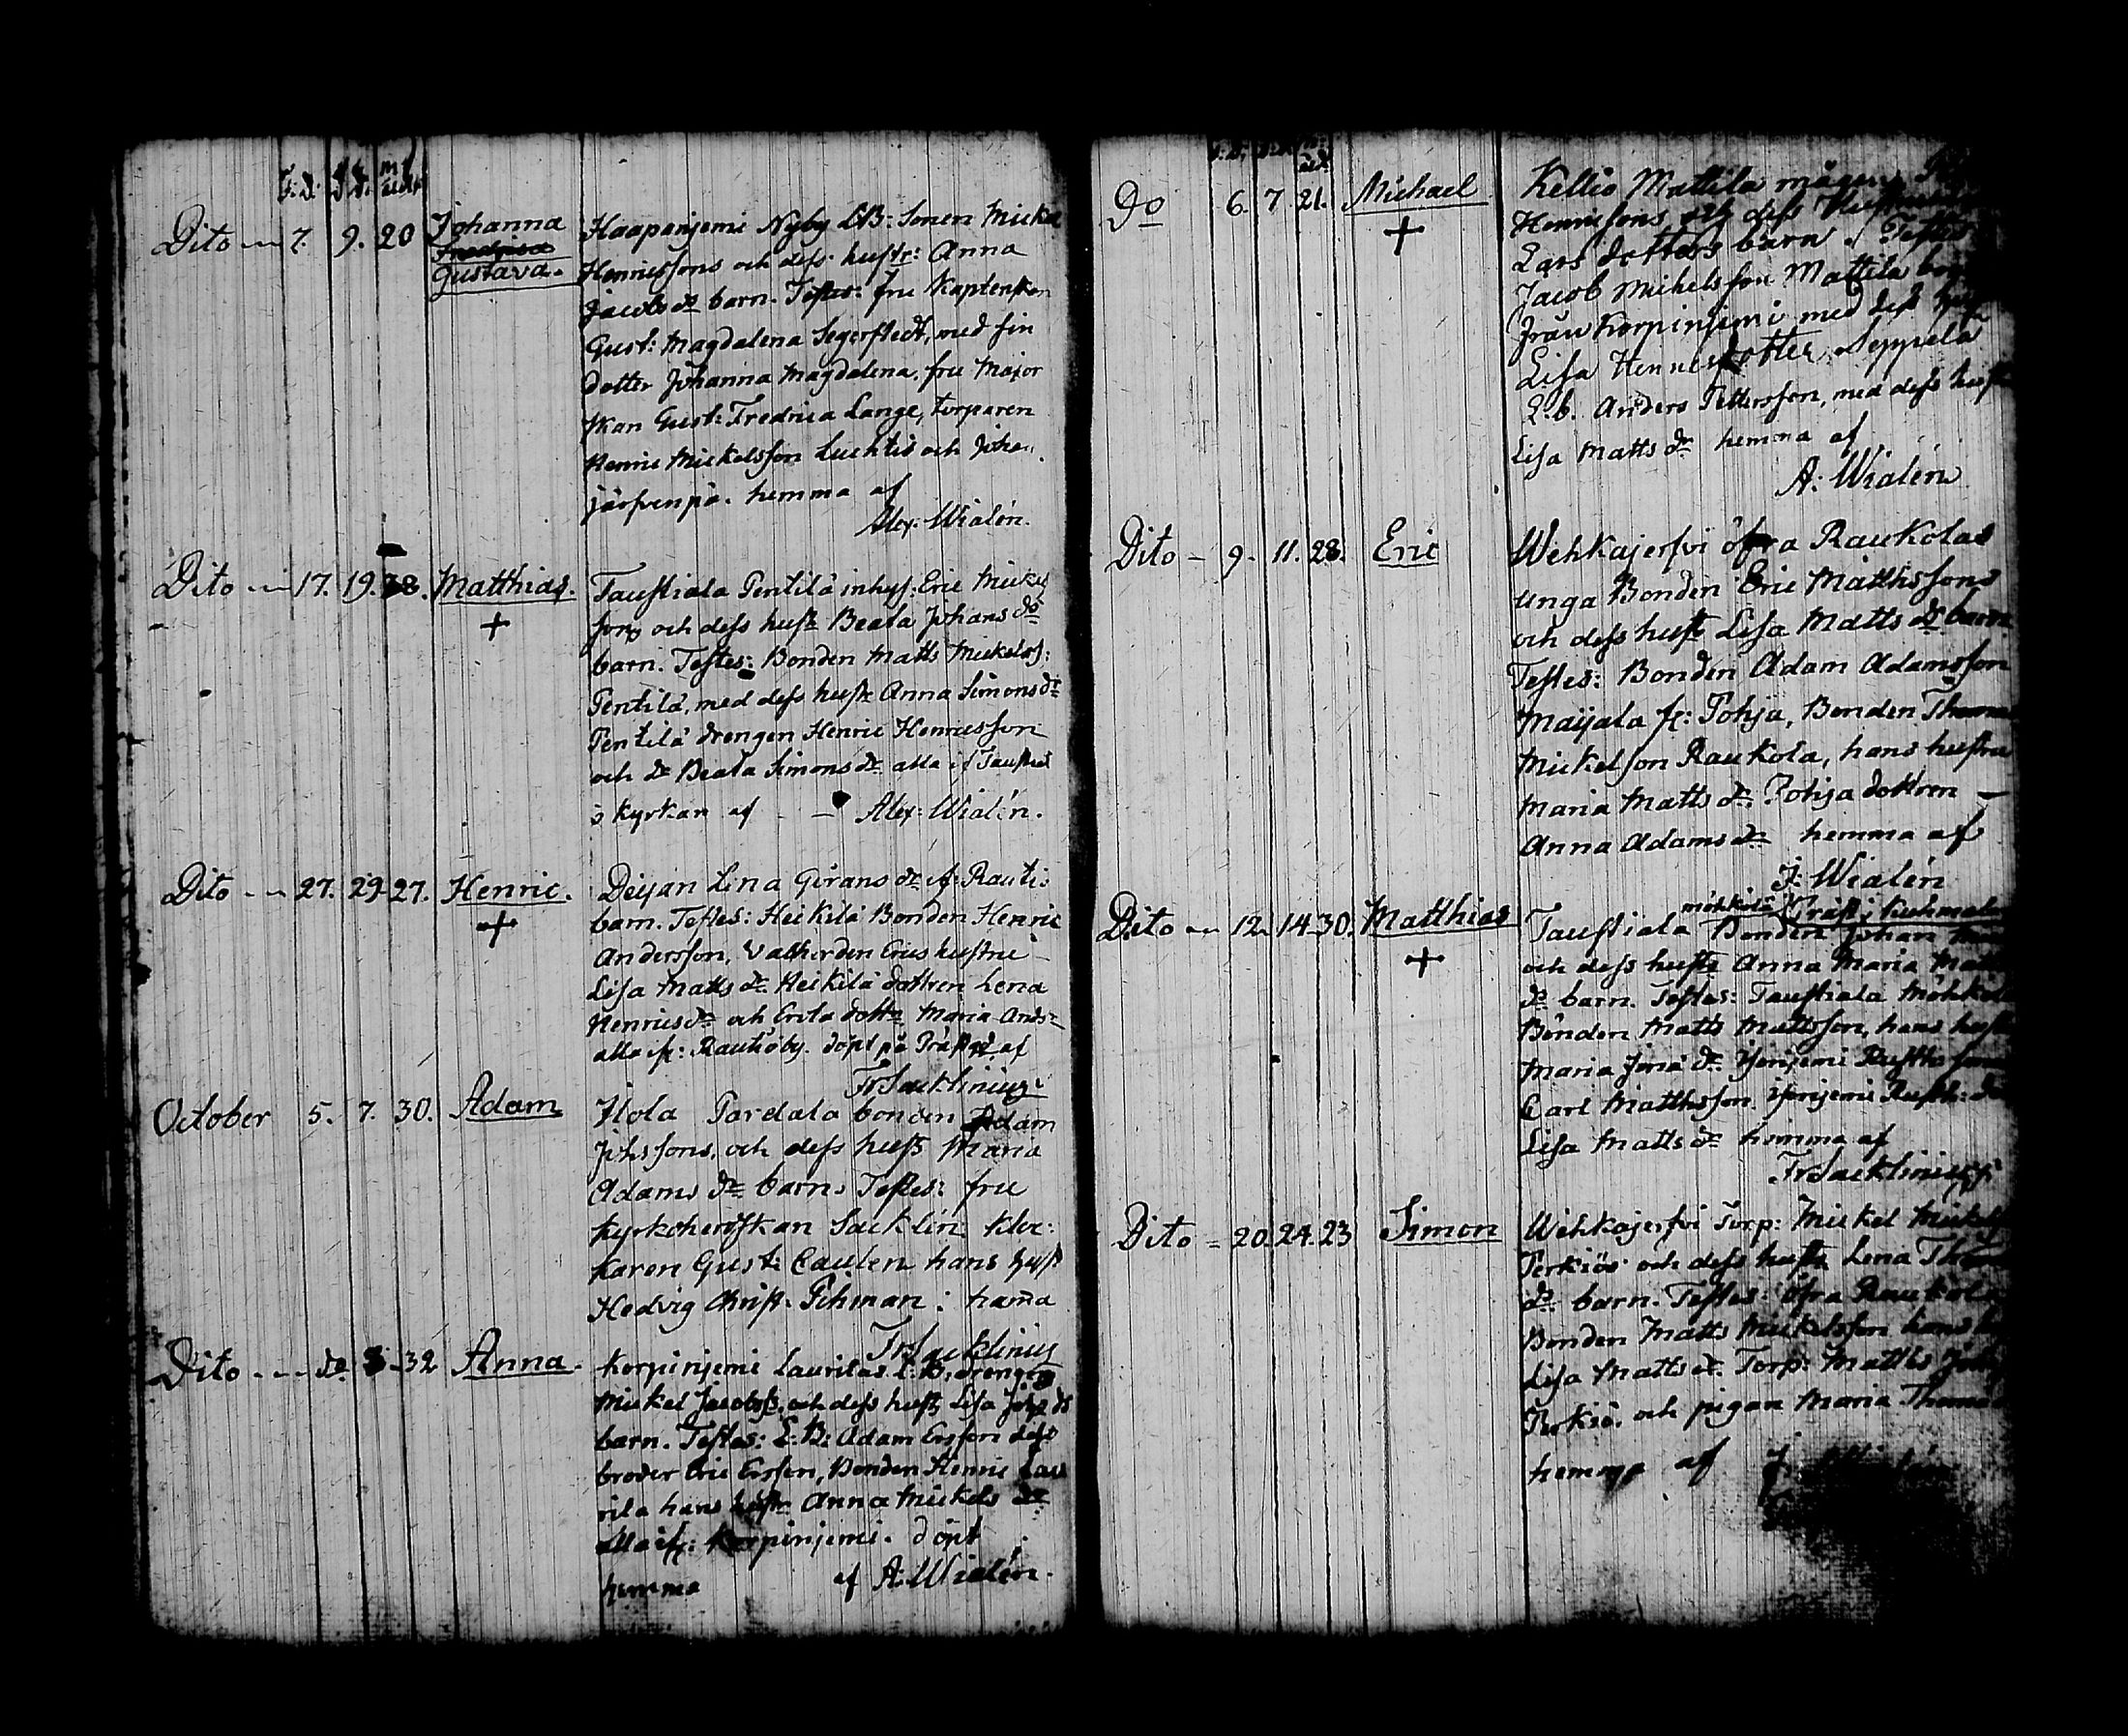 F:d. d:d. m ålder
Dito 7. 9. 20 Johanna
Gustava.
Haapanjemi Nyby LB: Sonen Mickel
Henricssons och dess hustr: Anna
Jacobs dr barn. Testes: fru Kaptenskan
Gust: Magdalena Segerstedt, med sin
dotter Johanna Magdalena, fru Major
skan Gust: Fredrica Lange, torparen
Henric Mickelsson Luchtis och Joha..
järfvenpä. hemma af
Alex: Wialén.
Dito 17. 19. 28. Matthias.
+
Taustiala Pentilä inhys: Eric Mickels
sons och dess hustr Beata Johans dr
barn. Testes: Bonden Matts Mickelss:
Pentilä, med dess hustr Anna Simons dr
Pentilä drengen Henric Henricsson
och dr Beata Simons dr alla if Taustiala
i kyrkan af — Alex: Wialén.
Dito 27. 29. 27. Henric.
+
Deijan Lena Görans dr if: Rautis
barn. Testes: Heikilä Bonden Henric
Andersson, Erics hustru
Lisa Matts dr Heikilä dottren Lena
Henrics dr och Erola dottr Maria Ands
alla if: Rautioby. döpt på Prästgd af
Fr Sacklinius
October 5. 7. 30. Adam
Hola Pardala bonden Adam
Johssons, och dess hustr Maria
Adams dr barn. Testes: fru
Kyrkoherdskan Sacklin Kloc:
karen Gust: Caulen hans hust
Hedvig Christ: Pihman: hama
Fr Sacklinius
Dito do. 8. 32 Anna.
Korpinjemi Laurilas L: B, drengen
Mickel Jacobss. och dess hustr Lisa Johs dr
barn. Testes: L: B: Adam Ersson dess
broder Eric Ersson, Bonden Henric Lau
rila hans hustr Anna Mickels dr
alla if: Korpinjemi. döpt
hemma af A: Wialén.
Do 6. 7. 21. Michael
+
Kellio Mattila mågen
Henricssons och dess Hustru
Lars dotters barn. Testes
Jacob Michelsson Mattila
från Korpinjemi med dess
Lisa Henricsdotter, Seppelä
L.b. Anders Pettersson, med dess hustr
Lisa Matts dr hemma af
A: Wialén
Dito 9. 11. 28. Eric
Wehkajerfvi öfra Raukolas
unga Bonden Eric Matthssons
och dess hustr Lisa Matts dr barn
Testes: Bonden Adam Adamsson
Maijala fr: Pohja, Bonden Thomas
Mickelson Raukola, hans hustru
Maria Matts dr Pohja dottren —
Anna Adams dr hemma af
J: Wialén
Dito 12. 14. 30. Matthias
+
Möhkölä
Taustiala Bonden Johan
och dess hustr Anna Maria Matts
dr barn. Testes: Taustiala Möhkölä
Bonden Matts Mattsson, hans hustr
Maria dr Yönjemi
Carl Matthsson
Lisa Matts dr hemma af
Fr Sacklinius
Dito 20. 24. 23 Simon
Wehkajerfvi Torp: Mickel Mickels
Perkiös och dess hustr Lena Thomas
dr barn. Testes: öfra Raukola
Bonden Matts Mickelsson hans
Lisa Matts dr Torp: Matths
Perkiö, och pigan Maria Thomas
hemma af J: